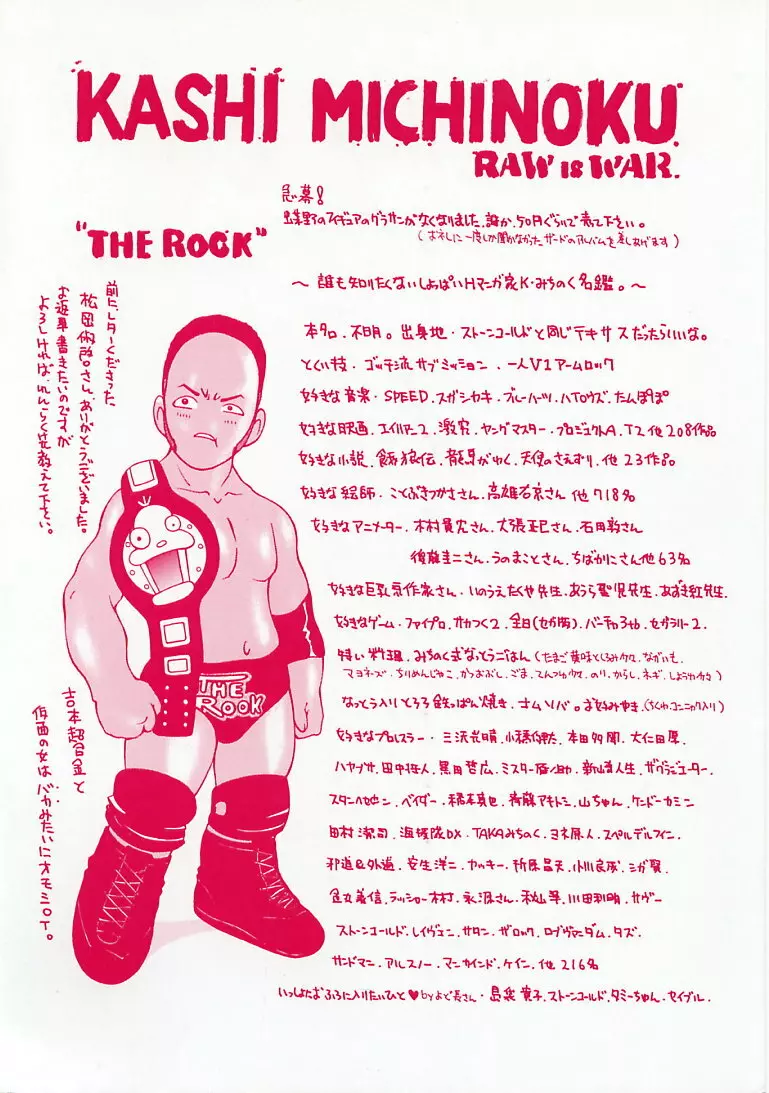 KASHI MICHINOKU
RAW IS WAR.
急募!
のフィギュアのグラサンがなくなりました。誰か、50円ぐらいで売て下さい。
(お礼に一度しか聞かなかったザードのアルバムを差しあげます)
"THE ROCK"
～誰も知りたくないしょっぱいHマンガ家K・みちのく名鑑。～
本名。不明。出身地・ストーンコールドと同じテキサスだったらいいな。
とくい技・ゴッチ流サブミッション．一人V1アームロック
好きな音楽・SPEED．スガシカオ．ブルーハーツ．ハTOウズ．たんぽぽ
好きな映画．エイリアン2．激突．ヤングマスター．プロジェクトA．T2他208作品
好きな小説．餓狼伝．龍馬がゆく．天使のさえずり．他23作品
好きな絵師・ことぶきつかささん．高雄右京さん他718名
好きなアニメーター．木村貴宏さん．大張正己さん．石田敦さん
後藤圭二さん．うのまことさん．ちばかにこさん他63名
好きな巨乳京作家さん・いのうえたくや先生．あうら聖児先生．あずき紅先生．
好きなゲーム・ファイプロ．サカつく2．全日(セガ版)．バーチャろん．セガラリー2．
特い料理．みちのく式なっとうごはん(たまご黄味とくるみ．ながいも．
マヨネーズ．ちりめんじゃこ．かつおぶし．ごま．てんつゆ．のり．からし．ネギ．しょうゆ)
なっとう入りとろろ鉄っぱん焼き．オムソバ。お好みやき(ちくわ、コンニャク入り)
好きなプロレスラー・三沢光晴．小橋健太．本田多聞．大仁田厚．
ハヤブサ．田中将人．黒田哲広．ミスター雁之助．新山勝人生．ザグラジエーター．
スタンハンセン．ベイダー．橋本真也．斉藤アキトシ．山ちゃん．ケンドーカシン
田村潔司．海援隊DX．TAKAみちのく．ヨネ原人．スペルデルフィン．
邪道&外道．安生洋二．ヤッキー．折原昌夫．小川良成．シガ賢．
金丸義信．ラッシャー木村．永源さん．秋山準．川田利明．サブー．
ストーンコールド．レイヴェン．サタン．ザロック．ロブヴァンダム．タズ．
サンドマン．アルスノー．マンカインド．ケイン．他216名
いっしょにおふろに入りたいひと♥byよど長さん・島袋寛子．ストーンコールド．タミーちゃん．セイブル．
前にレターくださった
松岡さん、ありがとうございました。
お返事書きたいのですが
よろしければ、れんらく先教えて下さい。
THE ROOK
吉本超合金と
仮面の女はバカみたいにオモシロイ。